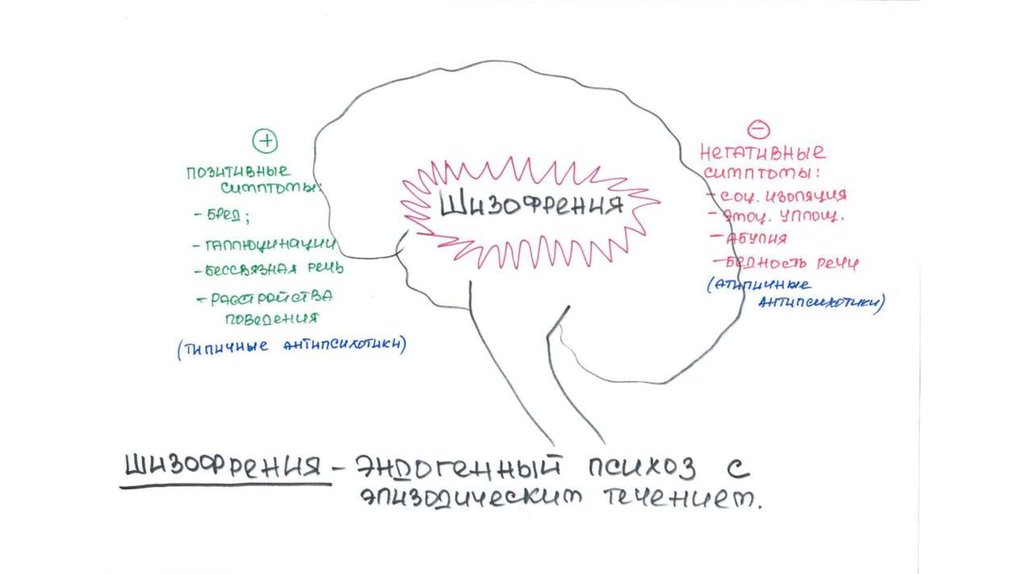 +
ПОЗИТИВНЫЕ
СИМПТОМЫ:
- БРЕД;
- ГАЛЛЮЦИНАЦИИ
- БЕССВЯЗНАЯ РЕЧЬ
- РАССТРОЙСТВА
ПОВЕДЕНИЯ
(ТИПИЧНЫЕ АНТИПСИХОТИКИ)
ШИЗОФРЕНИЯ
−
НЕГАТИВНЫЕ
СИМПТОМЫ:
- СОЦ. ИЗОЛЯЦИЯ
- ЭМОЦ. УПЛОЩ.
- АБУЛИЯ
- БЕДНОСТЬ РЕЧИ
(АТИПИЧНЫЕ
АНТИПСИХОТИКИ)
ШИЗОФРЕНИЯ - ЭНДОГЕННЫЙ ПСИХОЗ С
ЭПИЗОДИЧЕСКИМ ТЕЧЕНИЕМ.